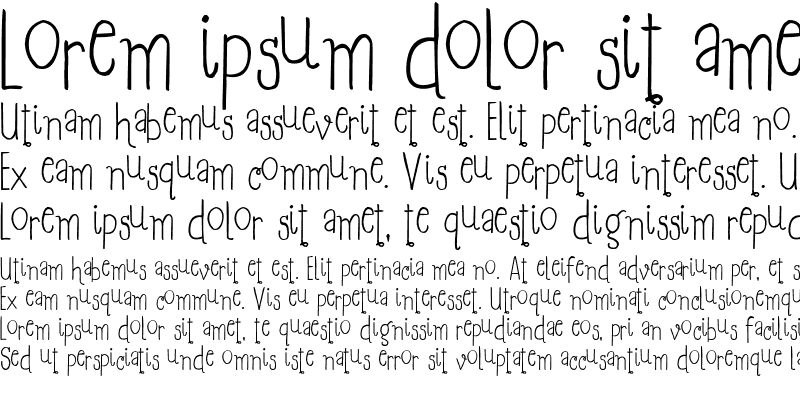 Lorem ipsum dolor sit ame
Utinam habemus assueverit et est. Elit pertinacia mea no.
Ex eam nusquam commune. Vis eu perpetua interesset. U
Lorem ipsum dolor sit amet, te quaestio dignissim repud
Utinam habemus assueverit et est. Elit pertinacia mea no. At eleifend adversarium per, et s
Ex eam nusquam commune. Vis eu perpetua interesset. Utroque nominati conclusionemqu
Lorem ipsum dolor sit amet, te quaestio dignissim repudiandae eos, pri an vocibus facilisi
Sed ut perspiciatis unde omnis iste natus error sit voluptatem accusantium doloremque la